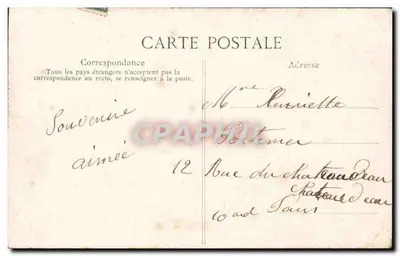 CARTE POSTALE
Correspondance
Tous les pays étrangers n'acceptent pas la
correspondance au recto, se renseigner à la poste.
Adresse
Souvenire
aimée
Mme Henriette
12
Rue du chateaudeau
Chateau d'eau
Paris
CPARAMA